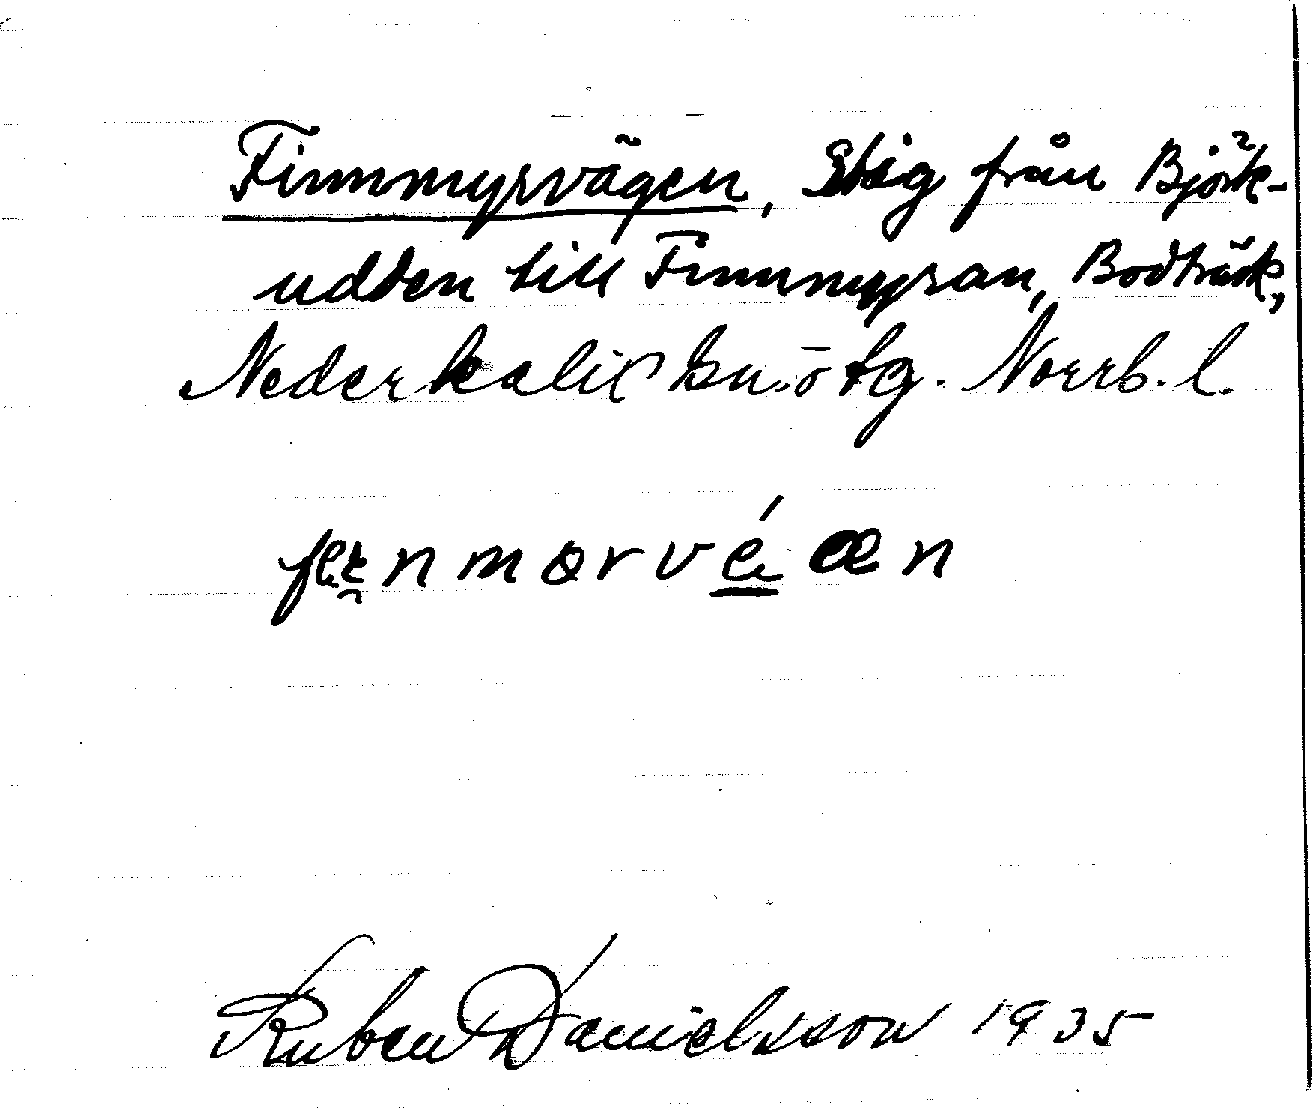 Finnmyrvägen, Stig från Björk-
udden till Finnmyran, Bodträsk,
Nederkalix sn. o tg. Norrb. l.
Ruben Danielsson 1935